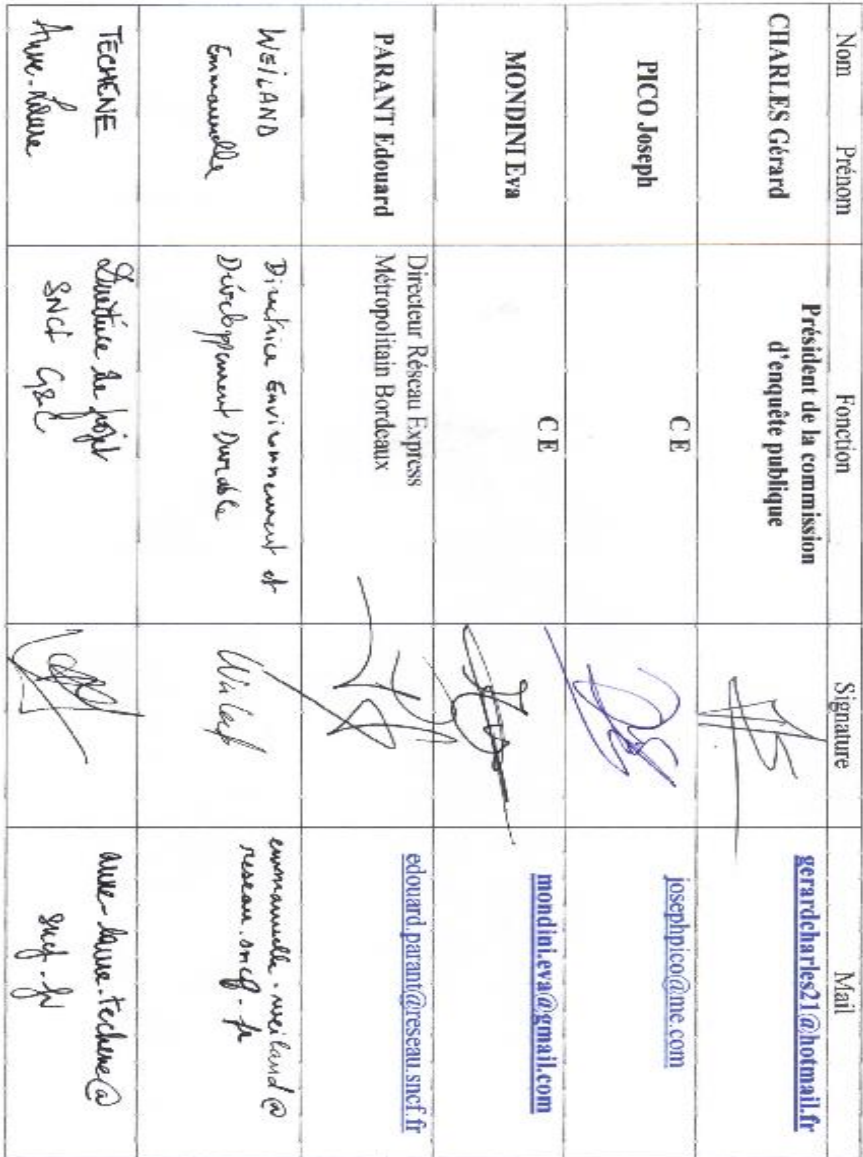 Nom Prénom Fonction Signature Mail
CHARLES Gérard
Président de la commission
d'enquête publique
gerardcharles21@hotmail.fr
PICO Joseph
C E
josephpico@me.com
MONDINI Eva
C E
mondini.eva@gmail.com
PARANT Edouard
Directeur Réseau Express
Métropolitain Bordeaux
edouard.parant@reseau.sncf.fr
WEILAND
Emmanuelle
Directrice Environnement et
Développement Durable
emmanuelle.weiland@
reseau.sncf.fr
TECHENE
Anne-Laure
Directrice de projet
SNCF G&C
anne-laure.techene@
sncf.fr